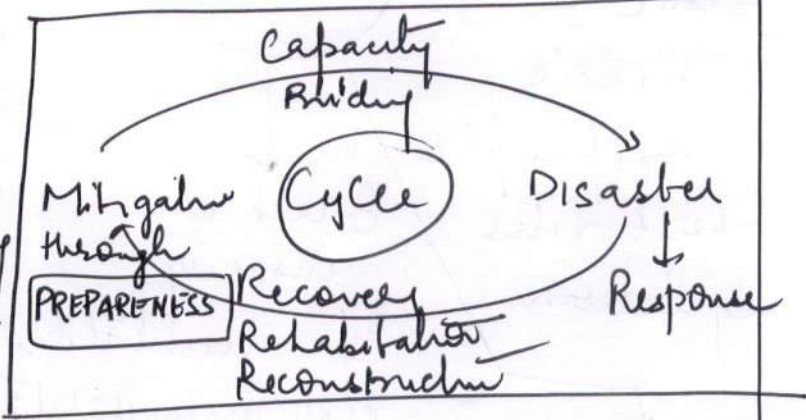 Capacity
Building
Mitigation
through
PREPARENESS
Cycle
Disaster
Response
Recovery
Rehabilitation
Reconstruction